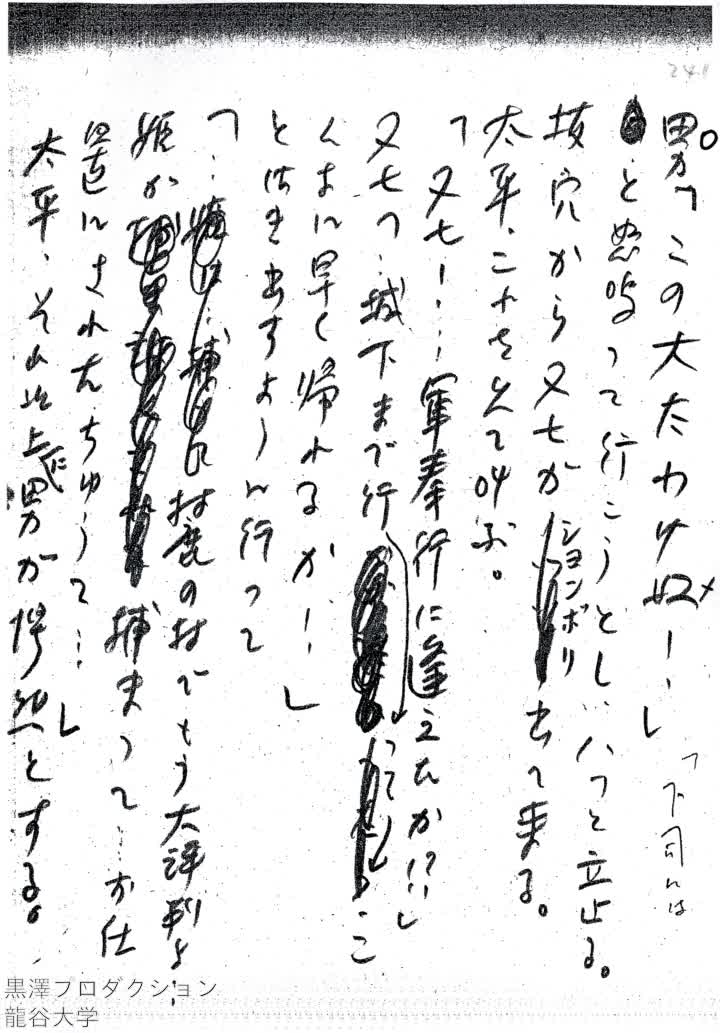 241
男「この大たわけ奴メ!!」
「下司には
と怒鳴って行こうとし、ハッと立止る。
抜穴から又七がションボリ出て来る。
太平、二十を見て叫ぶ。
「又七!…軍奉行に逢えたか⁉」
又七「…城下まで行って こ
んなに早く帰れるか!」
とはき出すように行って
「…麓の村でもう大評判よ…
姫が 捕まって…お仕
置にされたちゅうて…」
太平、それ以上に男が愕然とする。
黒澤プロダクション
龍谷大学